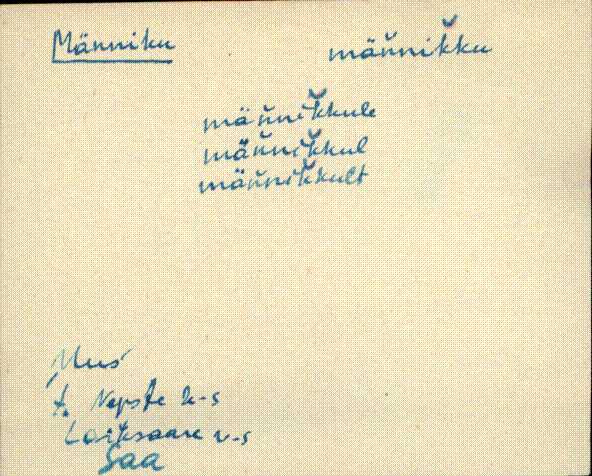 Männiku män̆nik̆ku
män̆nik̆kule
män̆nik̆kul
män̆nik̆kult
t. Nepste k-s
Laiksaare v-s
Saa